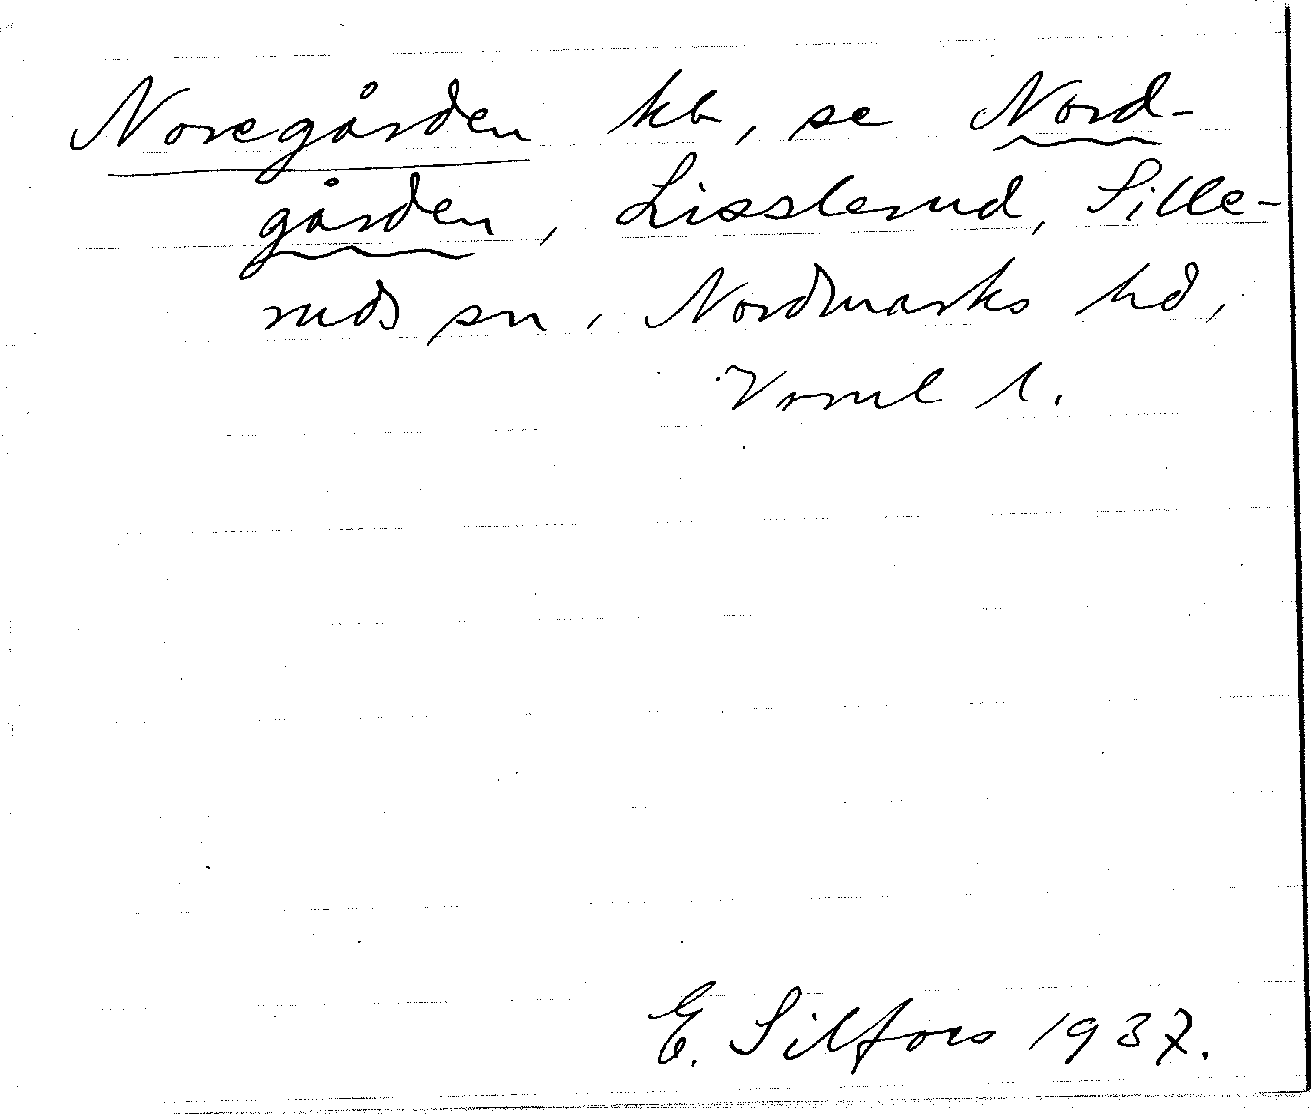 Noregården kb, se Nord-
gården, Lisslerud, Sille-
ruds sn, Nordmarks hd,
Värml l.
E. Silfors 1937.